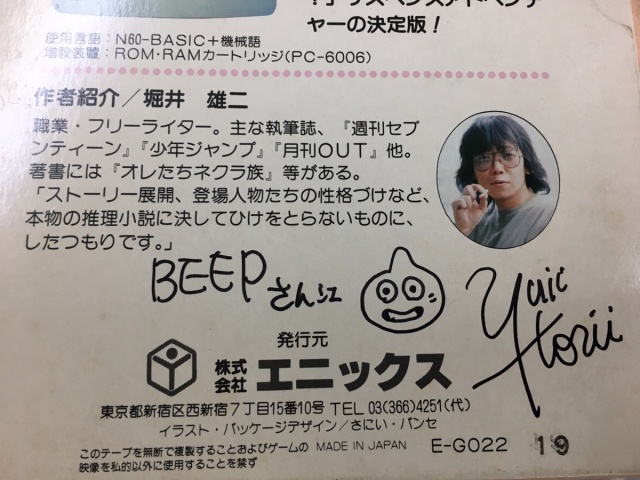 ！」サスペンスアドベンチ
ャーの決定版！
使用言語：N60-BASIC＋機械語
増設装置：ROM・RAMカートリッジ(PC-6006)
作者紹介／堀井 雄二
職業・フリーライター。主な執筆誌、『週刊セブ
ンティーン』『少年ジャンプ』『月刊OUT』他。
著書には『オレたちネクラ族』等がある。
「ストーリー展開、登場人物たちの性格づけなど、
本物の推理小説に決してひけをとらないものに、
したつもりです。」
BEEPさん江
Yuji Horii
発行元
株式会社 エニックス
東京都新宿区西新宿7丁目15番10号 TEL 03(366)4251(代)
イラスト・パッケージデザイン／さにい・パンセ
このテープを無断で複製することおよびゲームの MADE IN JAPAN E-G022 19
映像を私的以外に使用することを禁ず